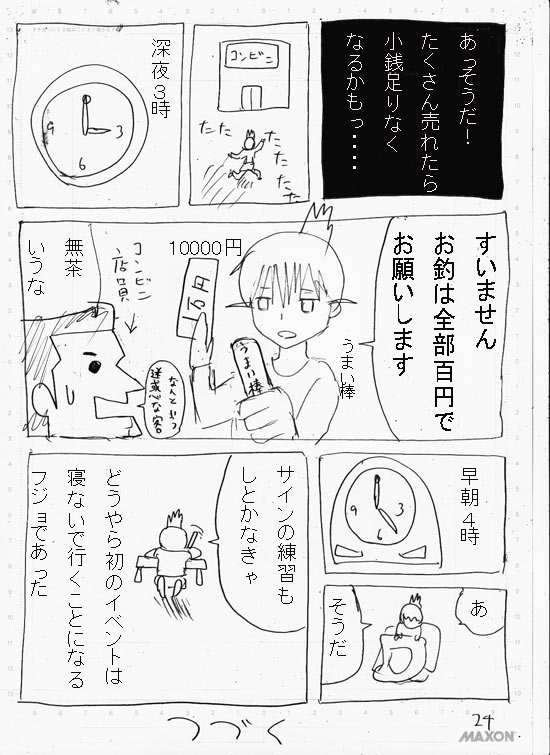 あっそうだ！
たくさん売れたら
小銭足りなく
なるかもっ・・・・
コンビニ
たた
たた
たた
深夜３時
9
3
6
すいません
お釣は全部百円で
お願いします
うまい棒
10000円
1万円
うまい棒
コンビニ
店員
無茶
いうな
なんという
迷惑な客
早朝４時
9
3
6
あ
そうだ
サインの練習も
しとかなきゃ
どうやら初のイベントは
寝ないで行くことになる
フジョであった
つづく
24
MAXON